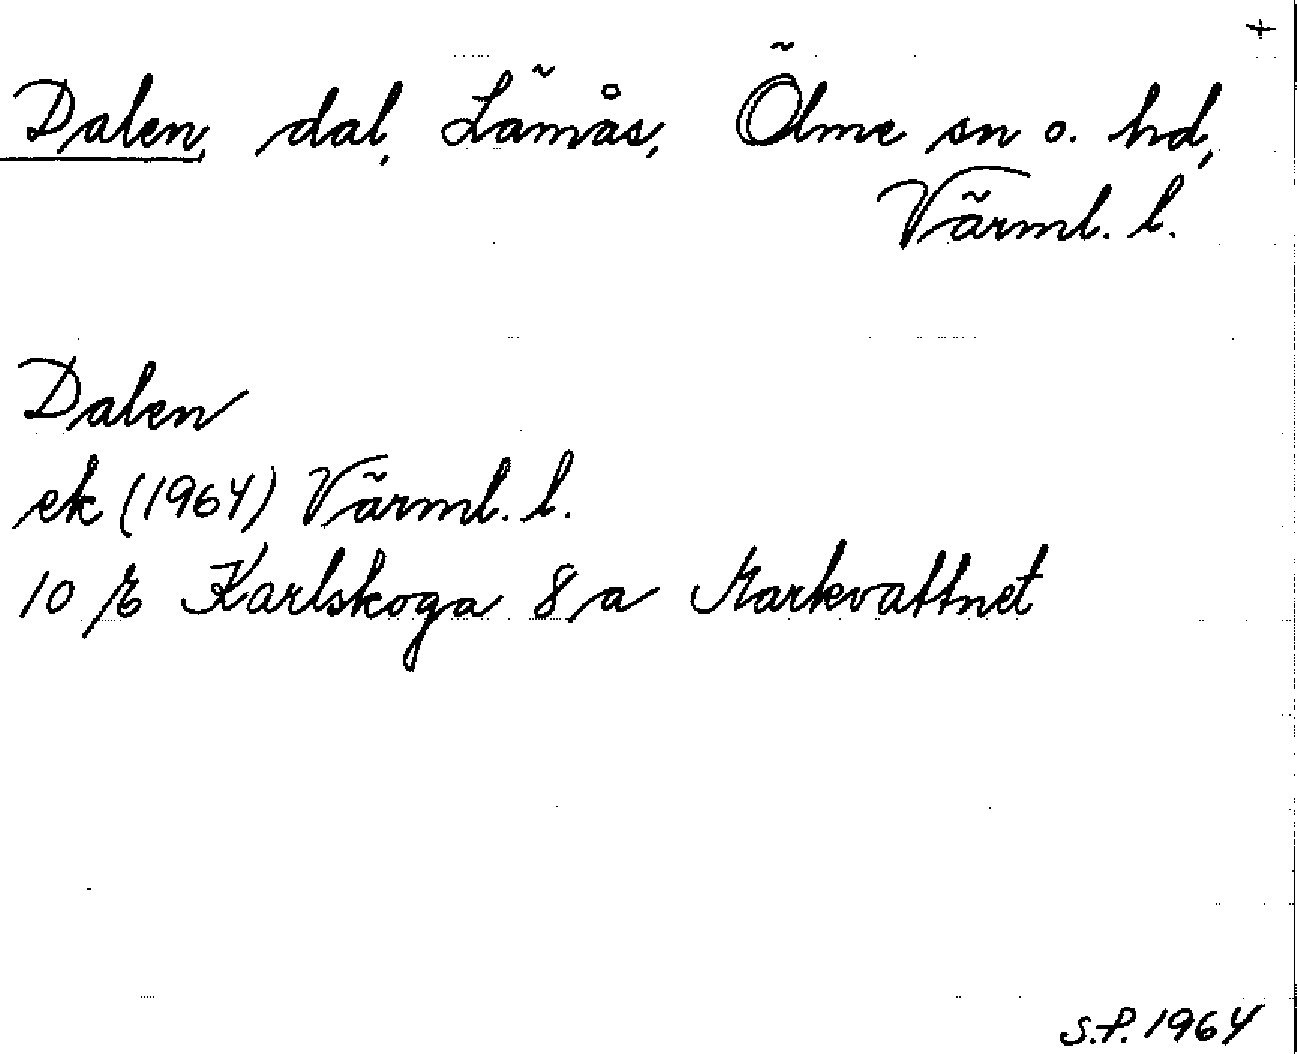 +
Dalen, dal, Lämås, Ölme sn o. hd,
Värml. l.
Dalen
ek (1964) Värml. l.
10 E Karlskoga 8 a Markvattnet
S.P. 1964